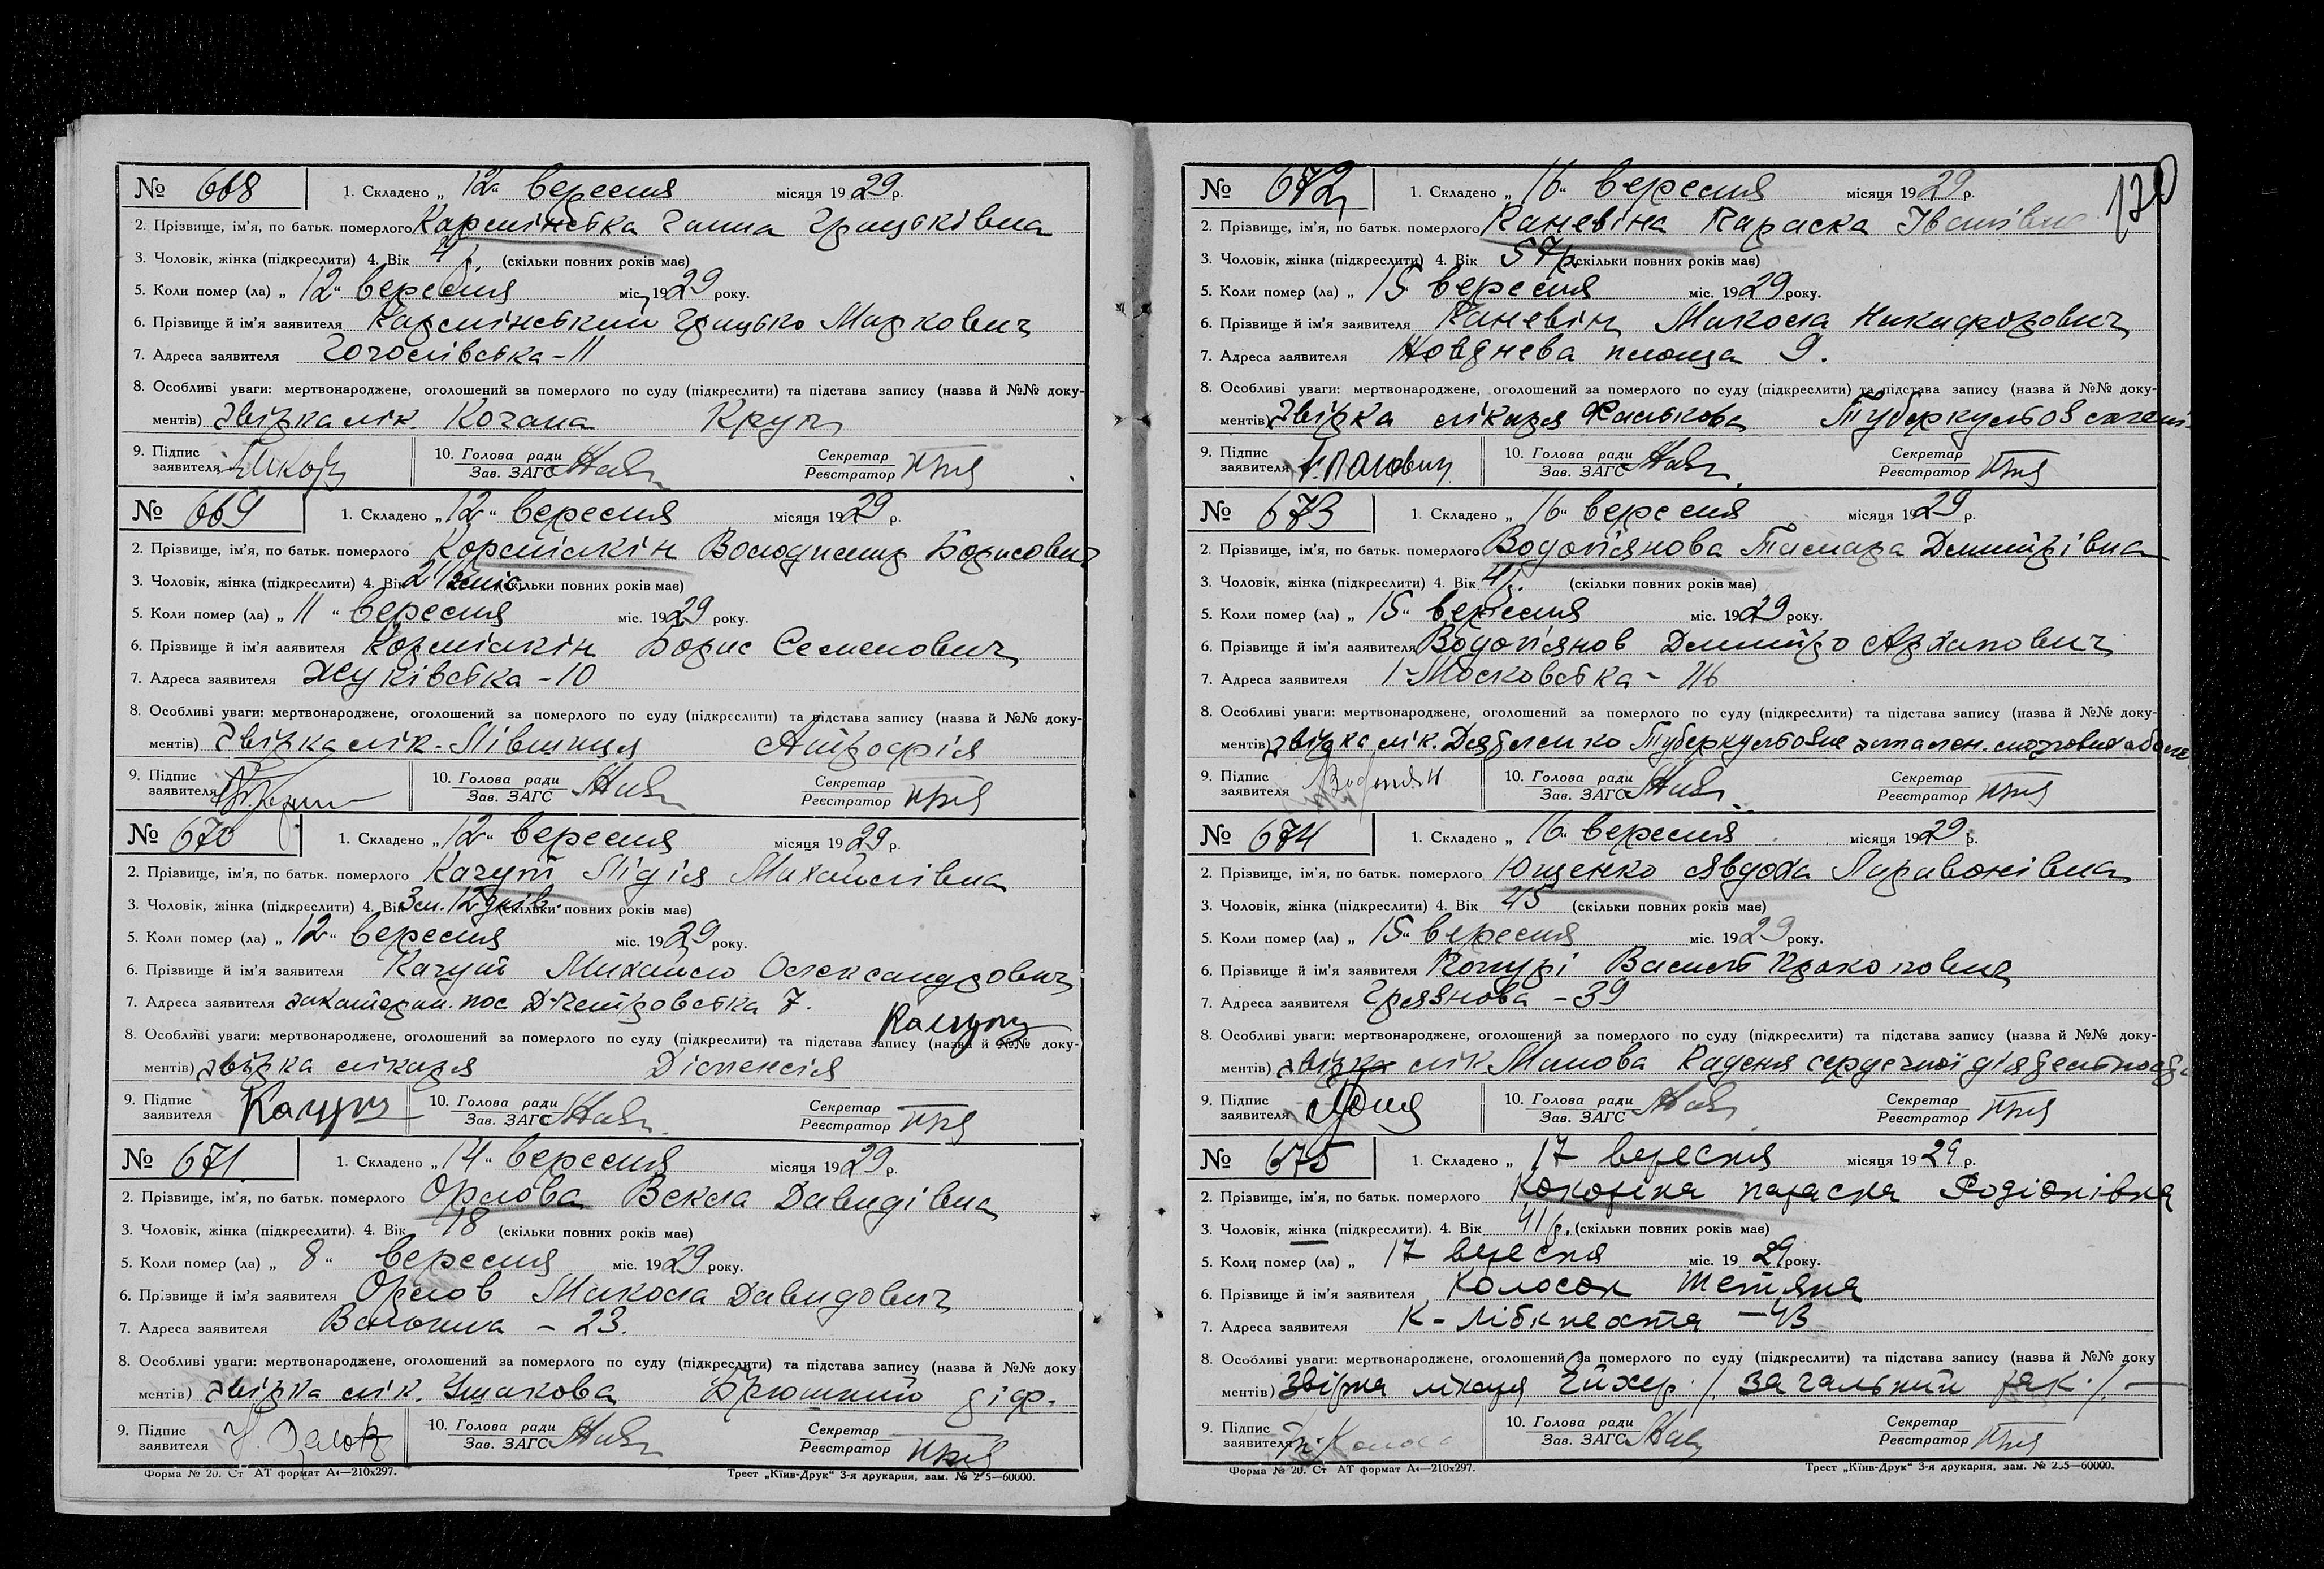 № 668 1. Складено „12“ вересня місяця 1929 р.
2. Прізвище, ім'я, по батьк. померлого Кармінська Ганна Грицьківна
3. Чоловік, жінка (підкреслити) 4. Вік 4 р. (скільки повних років має)
5. Коли помер (ла) „12“ вересня міс. 1929 року.
6. Прізвище й ім'я заявителя Кармінський Грицько Маркович
7. Адреса заявителя Гоголівська-11
8. Особливі уваги: мертвонароджене, оголошений за померлого по суду (підкреслити) та підстава запису (назва й №№ доку-
ментів) звірка лік. Когана Круп
9. Підпис заявителя 10. Голова ради Зав. ЗАГС Секретар Реєстратор
№ 669 1. Складено „12“ вересня місяця 1929 р.
2. Прізвище, ім'я, по батьк. померлого Кормілкін Володимир Борисович
3. Чоловік, жінка (підкреслити) 4. Вік (скільки повних років має)
5. Коли помер (ла) „11“ вересня міс. 1929 року.
6. Прізвище й ім'я заявителя Кормілкін Борис Семенович
7. Адреса заявителя Жуківська-10
8. Особливі уваги: мертвонароджене, оголошений за померлого по суду (підкреслити) та підстава запису (назва й №№ доку-
ментів) звірка лік. Лівшиця Атрофія
9. Підпис заявителя 10. Голова ради Зав. ЗАГС Секретар Реєстратор
№ 670 1. Складено „12“ вересня місяця 1929 р.
2. Прізвище, ім'я, по батьк. померлого Качут Лідія Михайлівна
3. Чоловік, жінка (підкреслити) 4. Вік 3 м. 12 днів. (скільки повних років має)
5. Коли помер (ла) „12“ вересня міс. 1929 року.
6. Прізвище й ім'я заявителя Качут Михайло Олександрович
7. Адреса заявителя пос Д-Петровська 7.
8. Особливі уваги: мертвонароджене, оголошений за померлого по суду (підкреслити) та підстава запису (назва й №№ доку-
ментів) звірка лікаря Діспепсія
9. Підпис заявителя 10. Голова ради Зав. ЗАГС Секретар Реєстратор
№ 671. 1. Складено „14“ вересня місяця 1929 р.
2. Прізвище, ім'я, по батьк. померлого Орлова Векла Давидівна
3. Чоловік, жінка (підкреслити). 4. Вік 18 (скільки повних років має)
5. Коли помер (ла) „8“ вересня міс. 1929 року.
6. Прізвище й ім'я заявителя Орлов Микола Давидович
7. Адреса заявителя - 23.
8. Особливі уваги: мертвонароджене, оголошений за померлого по суду (підкреслити) та підстава запису (назва й №№ доку
ментів) звірка лік. Ушакова
9. Підпис заявителя Н. Орлов 10. Голова ради Зав. ЗАГС Секретар Реєстратор
Форма № 20. Ст АТ формат А4—210х297. Трест „Київ-Друк“ 3-я друкарня, зам. № 235—60000.
№ 672 1. Складено „16“ вересня місяця 1929 р.
2. Прізвище, ім'я, по батьк. померлого Каневіна Параска Іванівна
3. Чоловік, жінка (підкреслити) 4. Вік 57 р. (скільки повних років має)
5. Коли помер (ла) „15 вересня міс. 1929 року.
6. Прізвище й ім'я заявителя Каневін Микола Никифорович
7. Адреса заявителя Жовднева площа 9.
8. Особливі уваги: мертвонароджене, оголошений за померлого по суду (підкреслити) та підстава запису (назва й №№ доку-
ментів) звірка лікаря Факлькова Туберкульоз легені
9. Підпис заявителя 10. Голова ради Зав. ЗАГС Секретар Реєстратор
№ 673 1. Складено „16“ вересня місяця 1929 р.
2. Прізвище, ім'я, по батьк. померлого Водоп'янова Тамара Дмитрівна
3. Чоловік, жінка (підкреслити) 4. Вік 4 р. (скільки повних років має)
5. Коли помер (ла) „15“ вересня міс. 1929 року.
6. Прізвище й ім'я заявителя Водоп'янов Дмитро Архипович
7. Адреса заявителя 1-Московська -
8. Особливі уваги: мертвонароджене, оголошений за померлого по суду (підкреслити) та підстава запису (назва й №№ доку-
ментів) звірка лік. Туберкульозне запален. мозгових оболо
9. Підпис заявителя 10. Голова ради Зав. ЗАГС Секретар Реєстратор
№ 674 1. Складено „16“ вересня місяця 1929 р.
2. Прізвище, ім'я, по батьк. померлого Ющенко Явдоха Ларивонівна
3. Чоловік, жінка (підкреслити) 4. Вік 45 (скільки повних років має)
5. Коли помер (ла) „15“ вересня міс. 1929 року.
6. Прізвище й ім'я заявителя Василь
7. Адреса заявителя Грязнова -39
8. Особливі уваги: мертвонароджене, оголошений за померлого по суду (підкреслити) та підстава запису (назва й №№ доку-
ментів) звірка лік. сердечної
9. Підпис заявителя 10. Голова ради Зав. ЗАГС Секретар Реєстратор
№ 675 1. Складено „17 вересня місяця 1929 р.
2. Прізвище, ім'я, по батьк. померлого Параска Родіонівна
3. Чоловік, жінка (підкреслити). 4. Вік 41 р. (скільки повних років має)
5. Коли помер (ла) „17 вересня міс. 1929 року.
6. Прізвище й ім'я заявителя Колосок Тетяна
7. Адреса заявителя К-Лібкнехта
8. Особливі уваги: мертвонароджене, оголошений за померлого по суду (підкреслити) та підстава запису (назва й №№ доку
ментів) звірка лікаря загальний рак.
9. Підпис заявителя 10. Голова ради Зав. ЗАГС Секретар Реєстратор
Форма № 20. Ст АТ формат А4—210х297. Трест „Київ-Друк“ 3-я друкарня, зам. № 235—60000.